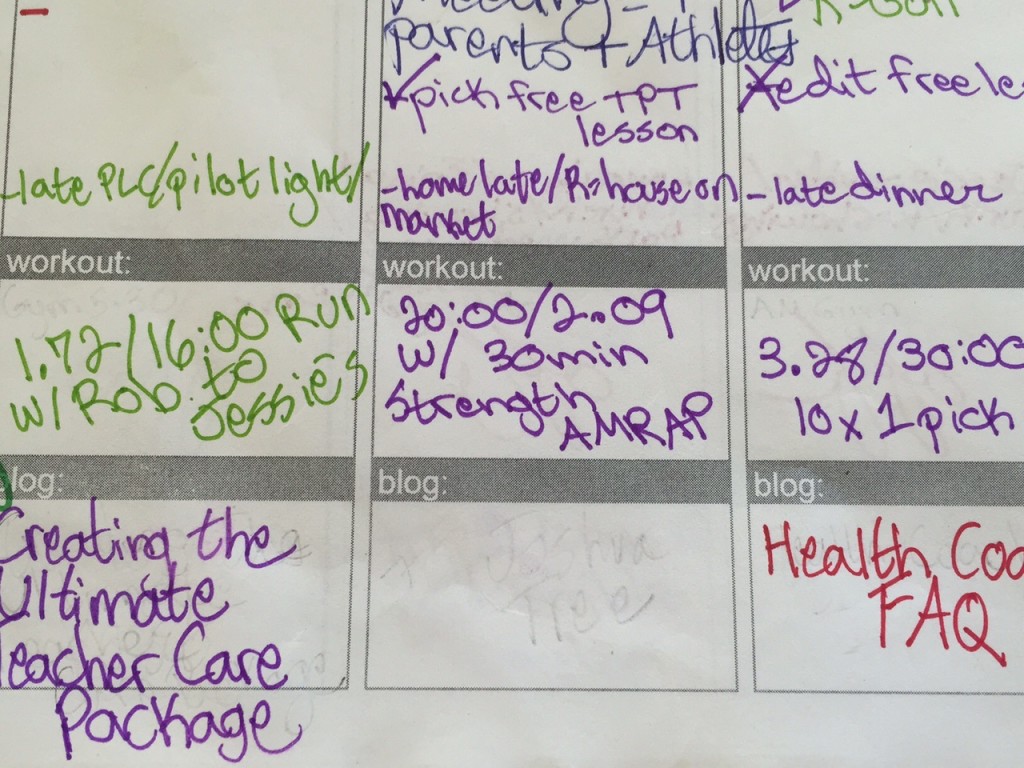 parents + Athletes
pick free TPT
lesson
-late PLC/pilot light/
workout:
1.72/16:00 RUN
W/ ROD to
Jessie's
log:
Creating the
Ultimate
Teacher Care
Package
-home late/R-house on
market
workout:
20:00/2.09
W/ 30min
Strength
AMRAP
blog:
Joshua
Tree
edit free le
-late dinner
workout:
3.28/30:00
10x 1 pick
blog:
Health Coa
FAQ